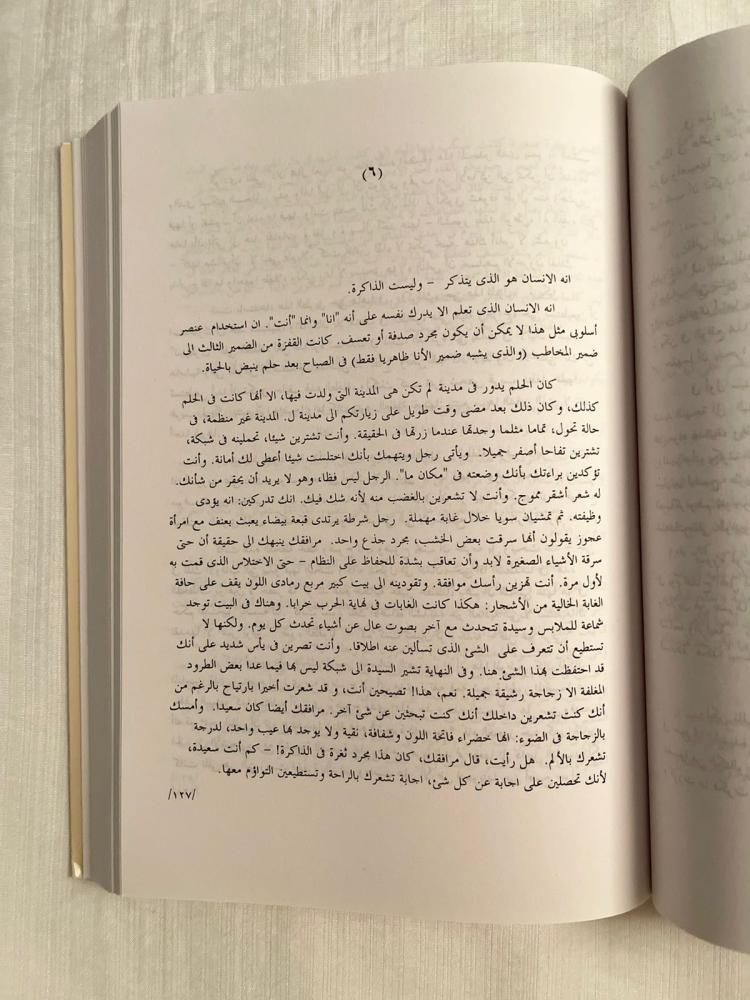 (٦)
انه الانسان هو الذى يتذكر - وليست الذاكرة.
انه الانسان الذى تعلم الا يدرك نفسه على أنه "انا" وانما "أنت". ان استخدام عنصر
أسلوبى مثل هذا لا يمكن أن يكون مجرد صدفة أو تعسف. كانت القفزة من الضمير الثالث الى
ضمير المخاطب (والذى يشبه ضمير الأنا ظاهريا فقط) فى الصباح بعد حلم ينبض بالحياة.
كان الحلم يدور فى مدينة لم تكن هى المدينة التى ولدت فيها، الا أنها كانت فى الحلم
كذلك، وكان ذلك بعد مضى وقت طويل على زيارتكم الى مدينة ل. المدينة غير منظمة، فى
حالة تحول، تماما مثلما وجدتها عندما زرتها فى الحقيقة. وأنت تشترين شيئا، تحملينه فى شبكة،
تشترين تفاحا أصفر جميلا. ويأتى رجل ويتهمك بأنك اختلست شيئا أعطى لك أمانة. وأنت
تؤكدين براءتك بأنك وضعته فى "مكان ما". الرجل ليس فظا، وهو لا يريد أن يحقر من شأنك.
له شعر أشقر مموج. وأنت لا تشعرين بالغضب منه لأنه شك فيك. انك تدركين: انه يؤدى
وظيفته. ثم تمشيان سويا خلال غابة مهملة. رجل شرطة يرتدى قبعة بيضاء يعبث بعنف مع امرأة
عجوز يقولون أنها سرقت بعض الخشب، مجرد جذع واحد. مرافقك ينبهك الى حقيقة أن حتى
سرقة الأشياء الصغيرة لابد وأن تعاقب بشدة للحفاظ على النظام - حتى الاختلاس الذى قمت به
لأول مرة. أنت تهزين رأسك موافقة. وتقودينه الى بيت كبير مربع رمادى اللون يقف على حافة
الغابة الخالية من الأشجار: هكذا كانت الغابات فى نهاية الحرب خرابا. وهناك فى البيت توجد
شماعة للملابس وسيدة تتحدث مع آخر بصوت عال عن أشياء تحدث كل يوم. ولكنها لا
تستطيع أن تتعرف على الشئ الذى تسألين عنه اطلاقا. وأنت تصرين فى يأس شديد على أنك
قد احتفظت بهذا الشئ هنا. وفى النهاية تشير السيدة الى شبكة ليس بها فيما عدا بعض الطرود
المغلفة الا زجاجة رشيقة جميلة. نعم، هذا! تصيحين أنت، و قد شعرت أخيرا بارتياح بالرغم من
أنك كنت تشعرين داخلك أنك كنت تبحثين عن شئ آخر. مرافقك أيضا كان سعيدا. وأمسك
بالزجاجة فى الضوء: انها خضراء فاتحة اللون وشفافة، نقية ولا يوجد بها عيب واحد، لدرجة
تشعرك بالألم. هل رأيت، قال مرافقك، كان هذا مجرد ثغرة فى الذاكرة! - كم أنت سعيدة،
لأنك تحصلين على اجابة عن كل شئ، اجابة تشعرك بالراحة وتستطيعين التواؤم معها.
/١٢٧/